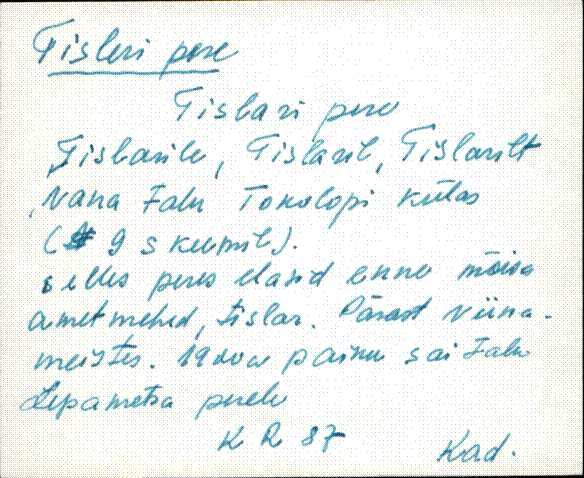 Tisleri pere
Tislari pere
Tislarile, Tislaril, Tislarilt
Vana talu Tokolopi külas
( 9 s keemil).
selles peres elasid enne mõisa
ametmehed, tislar. Pärast viina-
meister. sai talu
Lepametsa perele
K R 87
Kad.